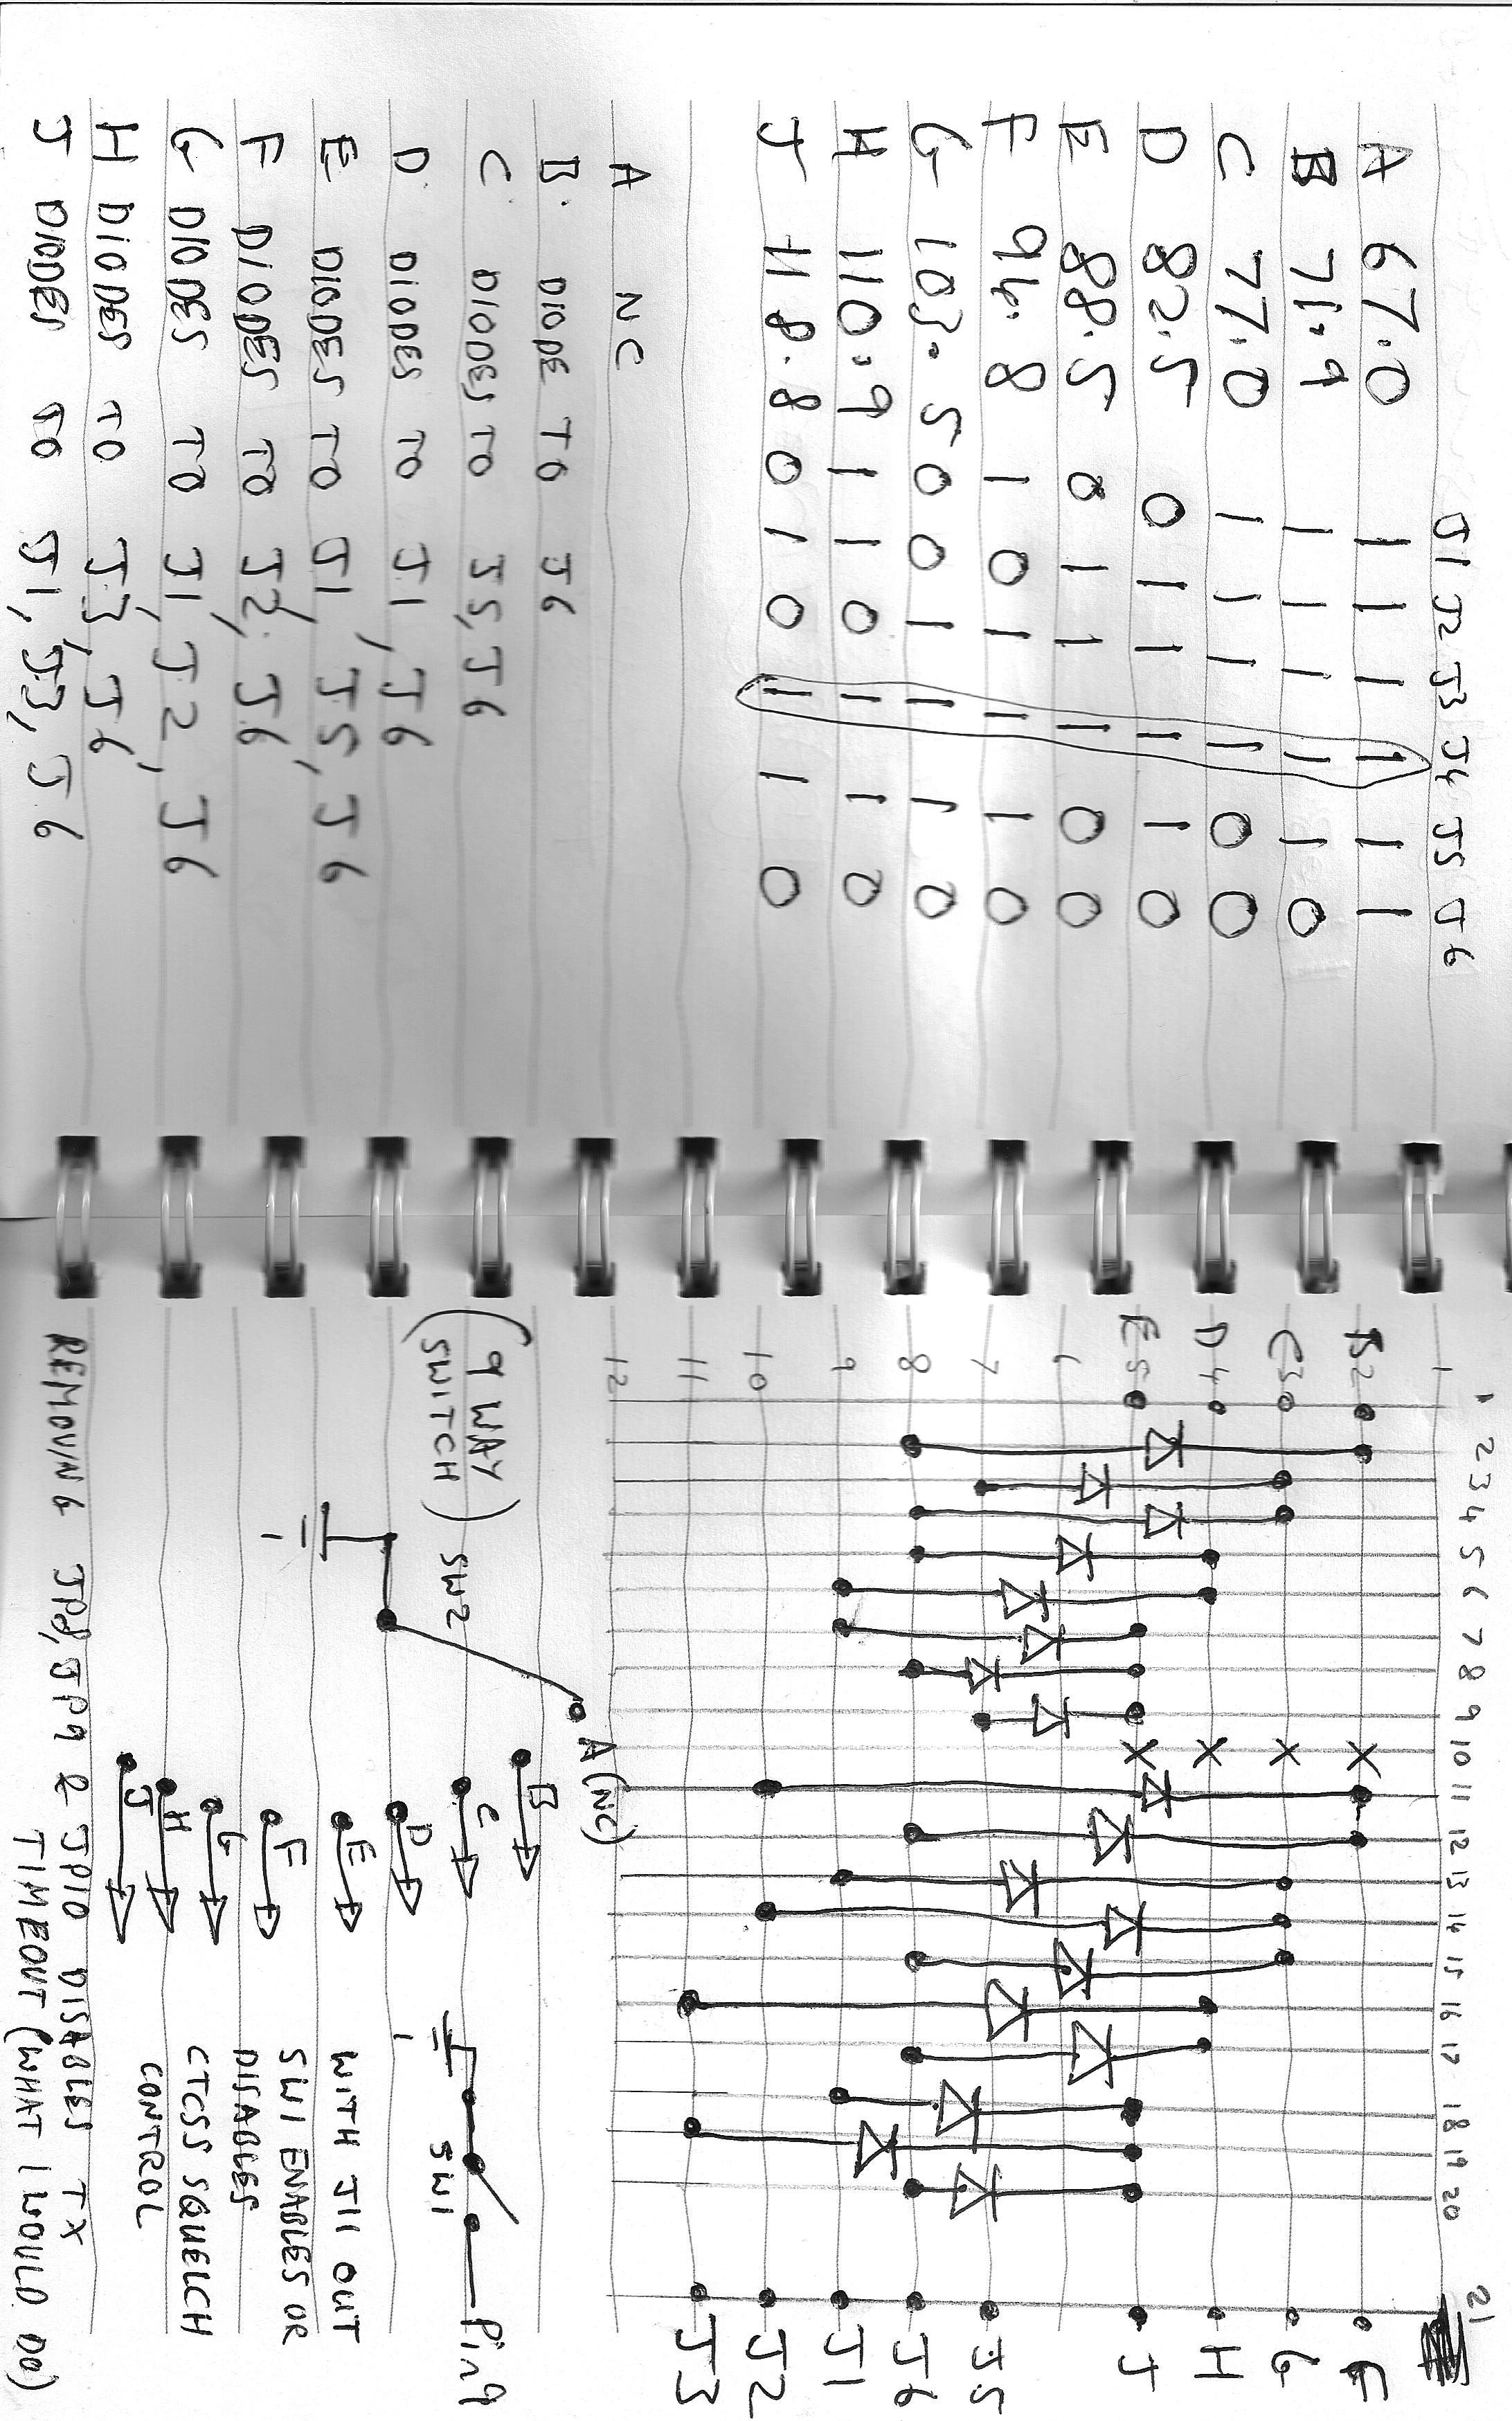 J1 J2 J3 J4 J5 J6
A 67.0 1 1 1 1 1 1
B 71.9 1 1 1 1 1 0
C 77.0 1 1 1 1 0 0
D 82.5 0 1 1 1 1 0
E 88.5 0 1 1 1 0 0
F 94.8 1 0 1 1 1 0
G 103.5 0 0 1 1 1 0
H 110.9 1 1 0 1 1 0
J 118.8 0 1 0 1 1 0
A NC
B. DIODE TO J6
C DIODES TO J5, J6
D DIODES TO J1, J6
E DIODES TO J1, J5, J6
F DIODES TO J2, J6
G DIODES TO J1, J2, J6
H DIODES TO J3, J6
J DIODES TO J1, J3, J6
1 2 3 4 5 6 7 8 9 10 11 12 13 14 15 16 17 18 19 20 21
1
B 2 F
C 3 G
D 4 H
E 5 J
6
7 J5
8 J6
9 J1
10 J2
11 J3
12
A (NC)
B
(9 WAY
SWITCH) SW2
C
D
E
F
G
H
J
SW1 Pin 9
WITH J11 OUT
SW1 ENABLES OR
DISABLES
CTCSS SQUELCH
CONTROL
REMOVING JP8, JP9 & JP10 DISABLES TX
TIMEOUT (WHAT I WOULD DO)